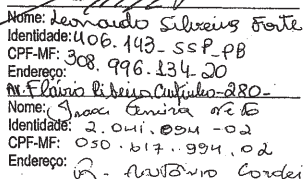 Nome: Leonardo Silveira Forte
Identidade: 406.143-SSP-PB
CPF-MF: 308.996.134-20
Endereço:
Av. Flávio Ribeiro Coutinho-280-
Nome: Ferreira Neto
Identidade: 2.041.094-02
CPF-MF: 050.617.994.02
Endereço: R. Antônio Cordei